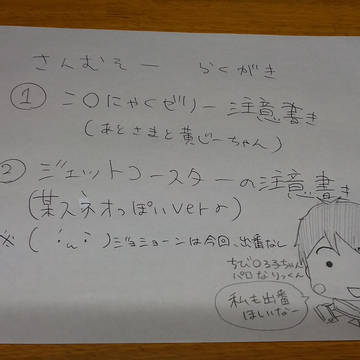 さんむそー らくがき
① こ〇にゃくゼリー 注意書き
(あとさまと黄じーちゃん)
② ジェットコースターの注意書き
(某スネオっぽいverょ)
※ ( ) ジョジョーンは今回、出番なし
ちび〇る子ちゃん
パロなりっくん
私も出番
ほしいなー